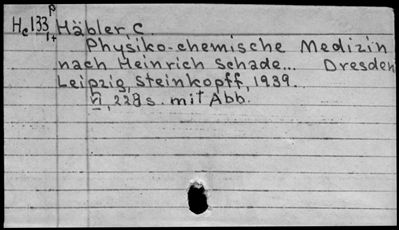 Hc 133 p/1+ Häbler, C.
Physiko-chemische Medizin
nach Heinrich Schade... Dresden
Leipzig, Steinkopff, 1939.
228 s. mit Abb.